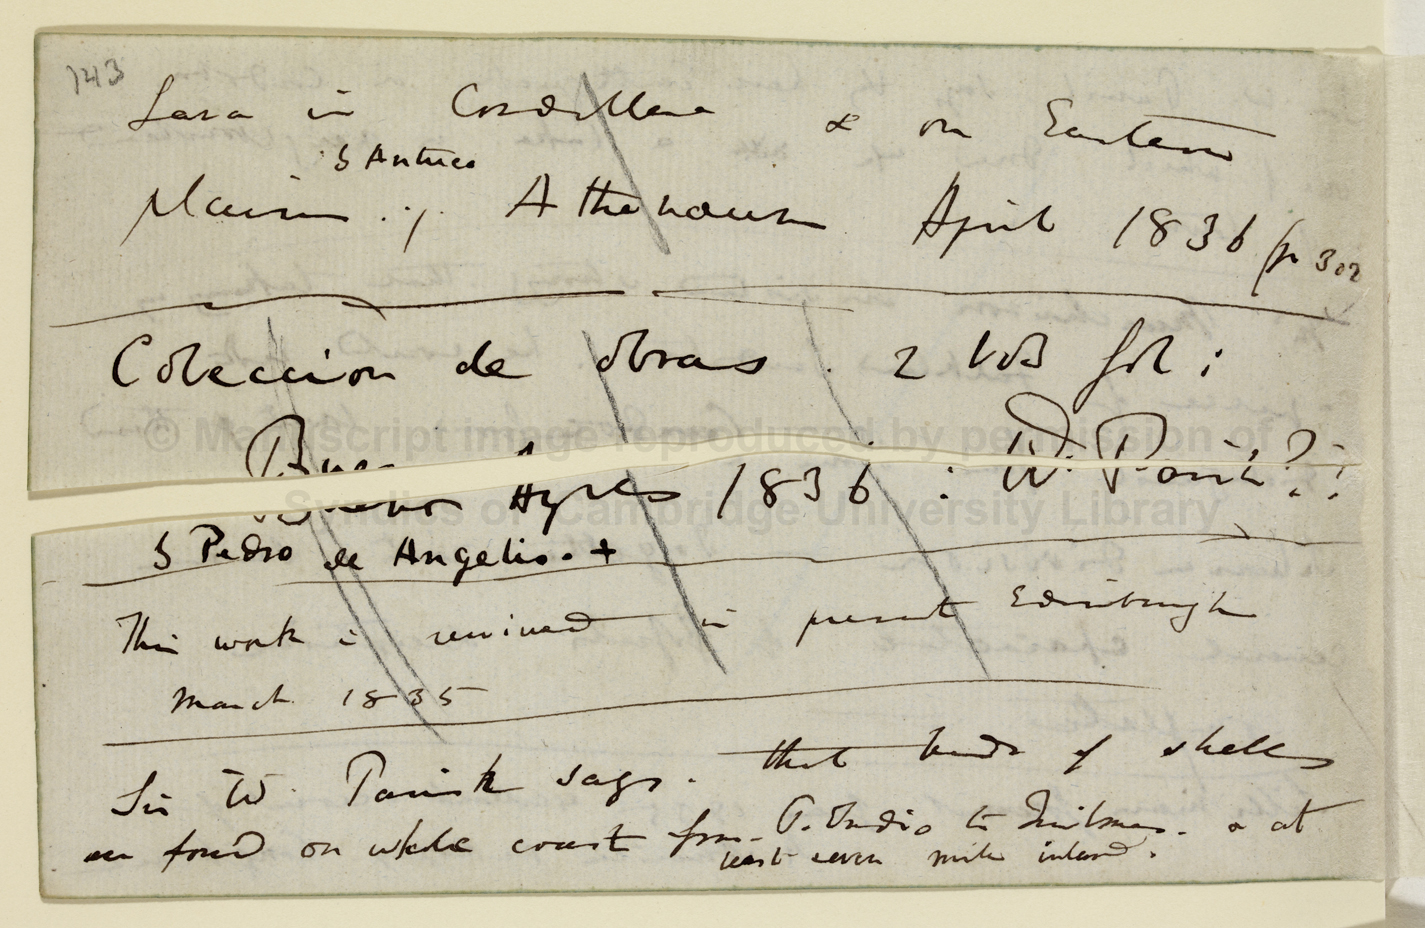 143
Lava in Cordillera & on Eastern
S Antuco
Plains. ·/· Athenaeum April 1836 (p 302
Coleccion de obras. 2 Vols fol:
Buenos Ayres 1836: W. Parish?:
S Pedro de Angelis. +
This work is reviewed in present Edinburgh
March 1835
Sir W. Parish says. that beds of shells
are found on whole coast from P. Indio to Quilmes. & at
least seven mile inland.
© Manuscript image reproduced by permission of
Syndics of Cambridge University Library